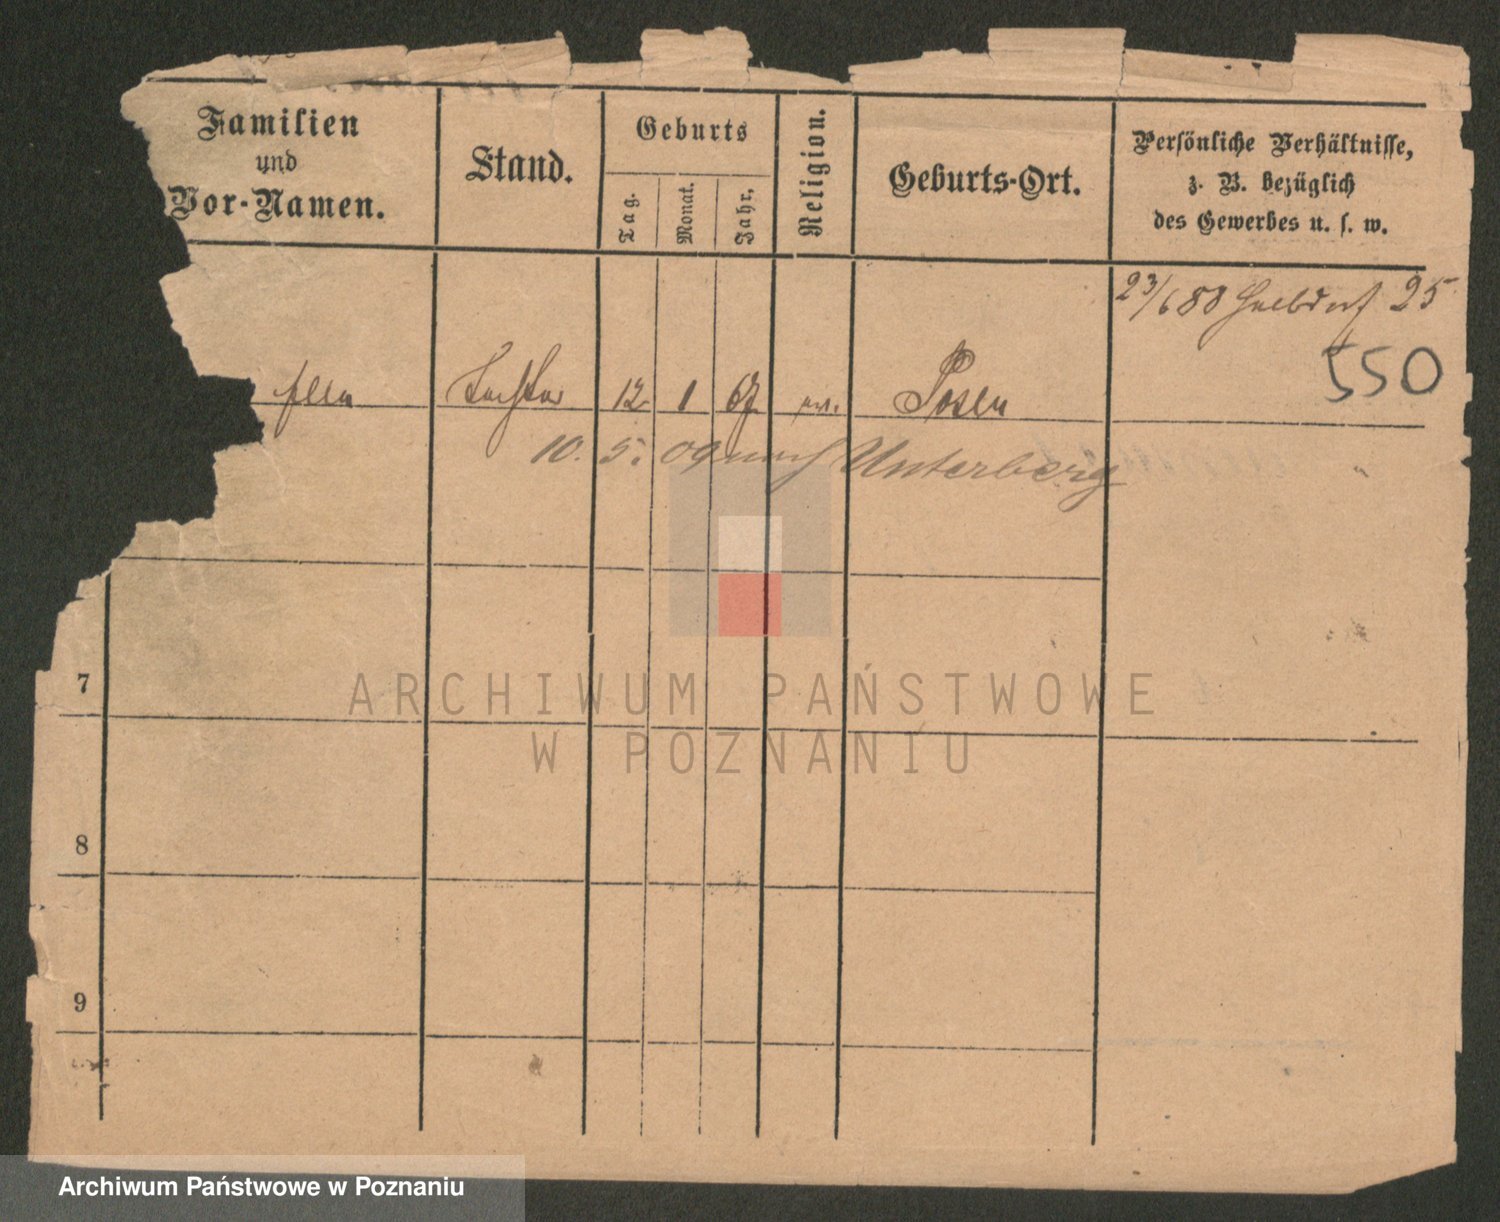 Familien
und
Vor-Namen.
Stand.
Geburts
Tag.
Monat.
Jahr.
Religion.
Geburts-Ort.
Persönliche Verhältnisse,
z. B. bezüglich
des Gewerbes u. s. w.
23/6 88 25
550
Tochter 12 1 67 ev. Posen
10. 5. 09 nach Unterberg
7
8
9
ARCHIWUM PAŃSTWOWE
W POZNANIU
Archiwum Państwowe w Poznaniu